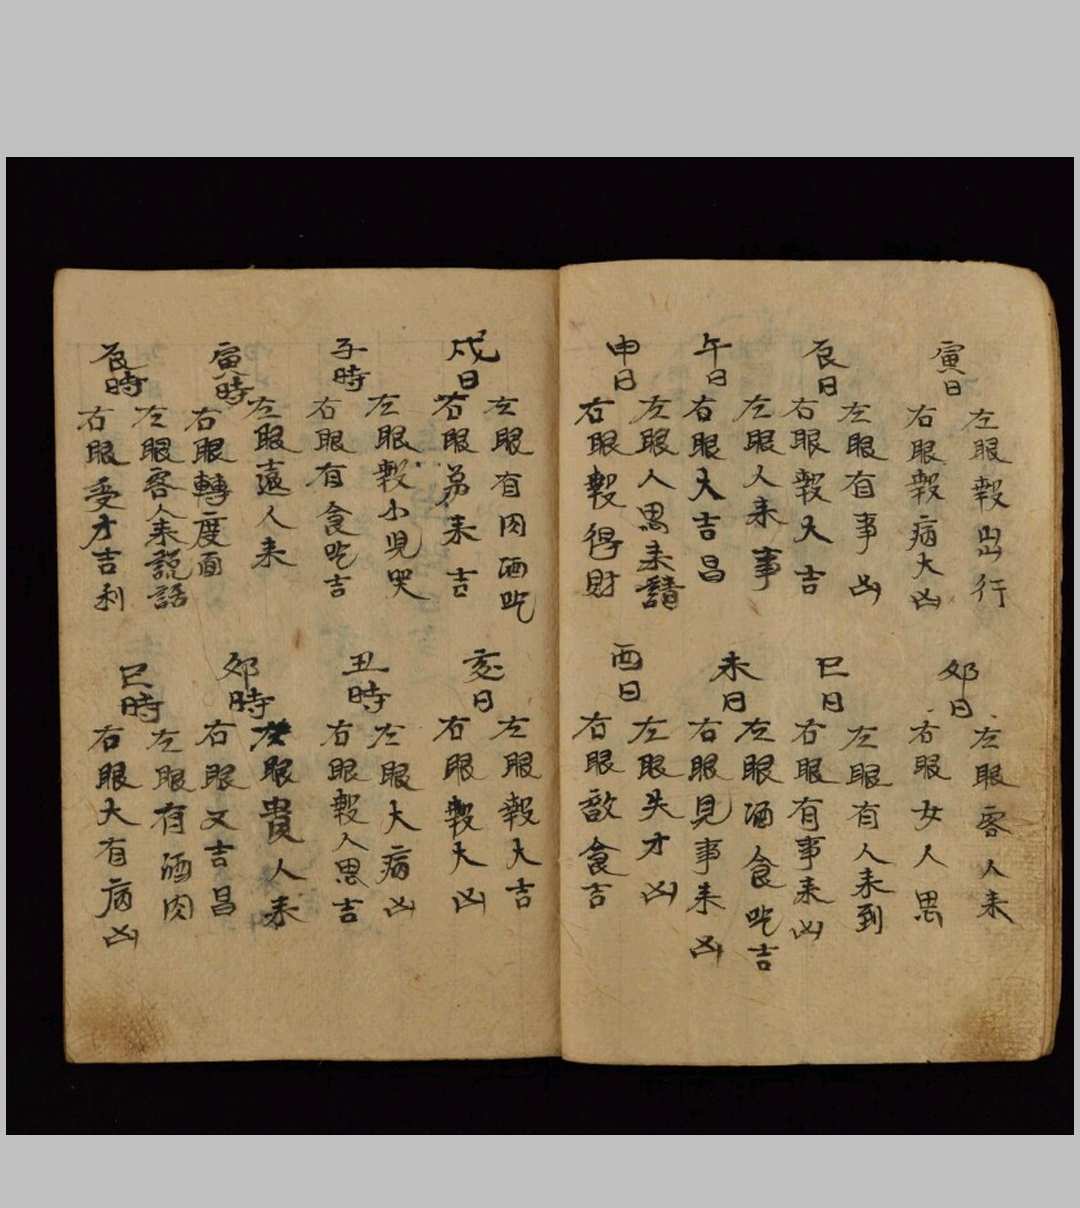 寅日
左眼報出行
右眼報病大凶
卯日
左眼客人来
右眼女人思
辰日
左眼有事凶
右眼報大吉
巳日
左眼有人来到
右眼有事来凶
午日
左眼人来事
右眼大吉昌
未日
左眼酒食吃吉
右眼見事来凶
申日
左眼人思来請
右眼報得財
酉日
左眼失才凶
右眼飲食吉
戌日
左眼有肉酒吃
右眼弟来吉
亥日
左眼報大吉
右眼報大凶
子時
左眼報小児哭
右眼有食吃吉
丑時
左眼大病凶
右眼報人思吉
寅時
左眼遠人来
右眼轉度面
卯時
左眼貴人来
右眼文吉昌
辰時
左眼客人来説話
右眼受才吉利
巳時
左眼有酒肉
右眼大有病凶